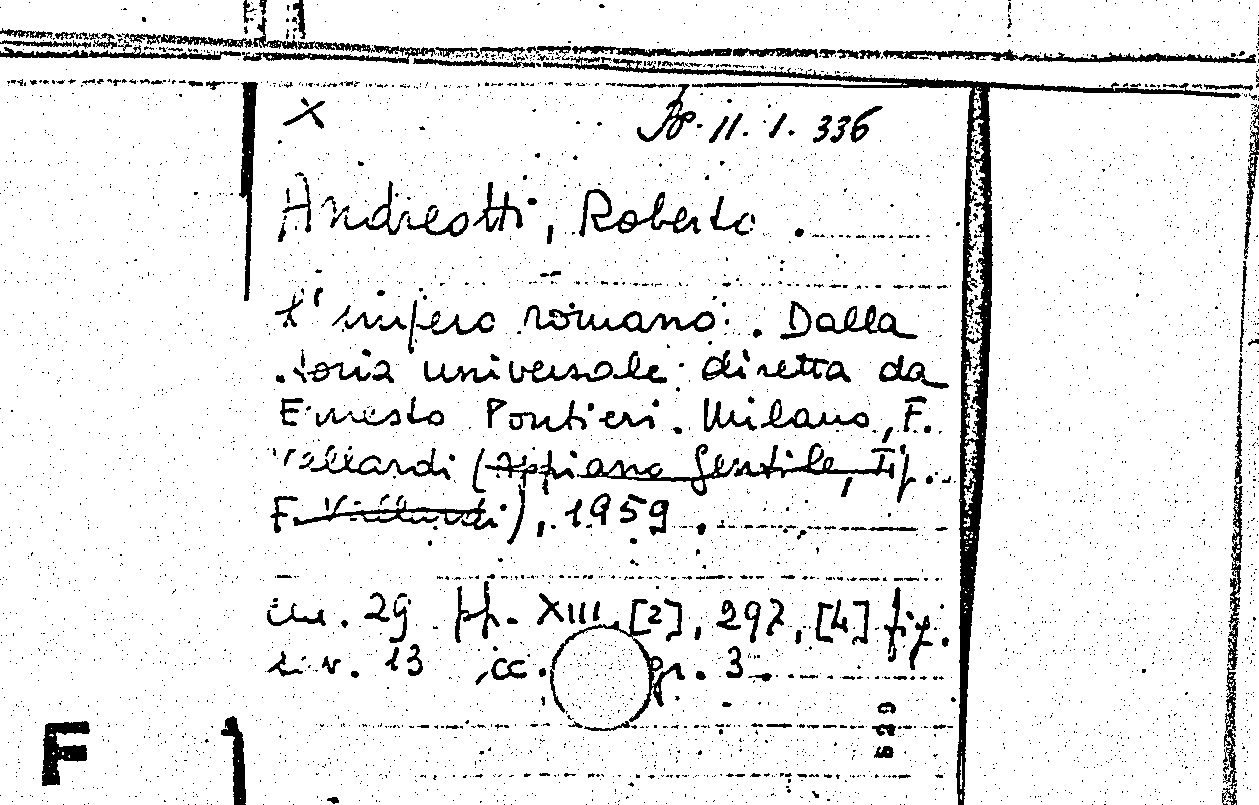 X
11. 1. 336
Andreotti, Roberto.
L'impero romano. Dalla
storia universale diretta da
Ernesto Pontieri. Milano, F.
Vallardi (Appiano Gentile, Tip.
F. Vallardi), 1959.
cm. 29 pp. XIII, [2], 297, [4] fig.
tav. 13 cc. gr. 3.
529
F